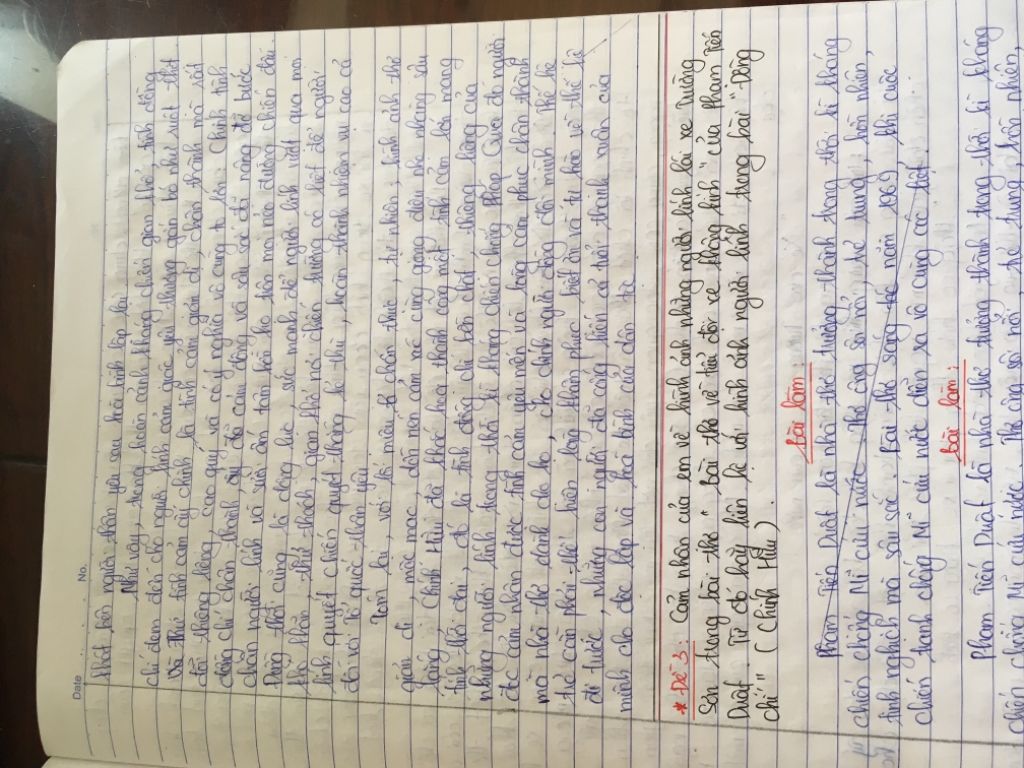 Date No.
thất hẹn người thân yêu sau hoà bình lập lại.
Như vậy, trong hoàn cảnh kháng chiến gian khổ, tình đồng
chí đem đến cho người lính cảm giác yêu thương gắn bó như ruột thịt
Và Thứ tình cảm ấy chính là tình cảm giản dị, chân thành mà rất
đỗi thiêng liêng, cao quý và có ý nghĩa vô cùng to lớn. Chính tình
đồng chí chân thành, ấy đã cảm động và sâu sắc đã nâng đỡ bước
chân người lính và sưởi ấm tâm hồn họ trên mọi nẻo đường chiến đấu
Đồng thời cũng là động lực, sức mạnh để người lính vượt qua mọi
khó khăn, thử thách, gian khổ nơi chiến trường có hết để người
lính quyết chiến quyết thắng kẻ thù, hoàn thành nhiệm vụ cao cả
đối với Tổ quốc thân yêu.
Tóm lại, với lối miêu tả chân thực, tự nhiên, hình ảnh thơ
giản dị mộc mạc, dồn nén cảm xúc cùng giọng điệu nhẹ nhàng sâu
lắng, Chính Hữu đã khắc hoạ thành công một tình cảm lớn mang
tính thời đại, đó là tình đồng chí keo sơn bền chặt, thiêng liêng của
những người lính trong thời kì kháng chiến chống Pháp. Qua đó người
đọc cảm nhận được tình cảm yêu mến và lòng cảm phục chân thành
mà nhà thơ dành cho, cho chính người đồng đội mình. Thế hệ
trẻ cần phải thể hiện lòng khâm phục biết ơn và tự hào về thế hệ
đi trước, những con người đã cống hiến cả tuổi thanh xuân của
mình cho độc lập và hoà bình của dân tộc.
* Đề 3: Cảm nhận của em về hình ảnh những người lính lái xe Trường
Sơn trong bài thơ "Bài thơ về tiểu đội xe không kính" của Phạm Tiến
Duật. Từ đó hãy liên hệ với hình ảnh người lính trong bài "Đồng
chí" (Chính Hữu)
Bài làm:
Phạm Tiến Duật là nhà thơ trưởng thành trong thời kì kháng
chiến chống Mĩ cứu nước. Thơ ông sôi nổi, trẻ trung, hồn nhiên,
tinh nghịch mà sâu sắc. Bài thơ sáng tác năm 1969 khi cuộc
chiến tranh chống Mĩ cứu nước diễn ra vô cùng ác liệt.
Bài làm:
Phạm Tiến Duật là nhà thơ trưởng thành trong thời kì kháng
chiến chống Mĩ cứu nước. Thơ ông sôi nổi, trẻ trung, hồn nhiên,